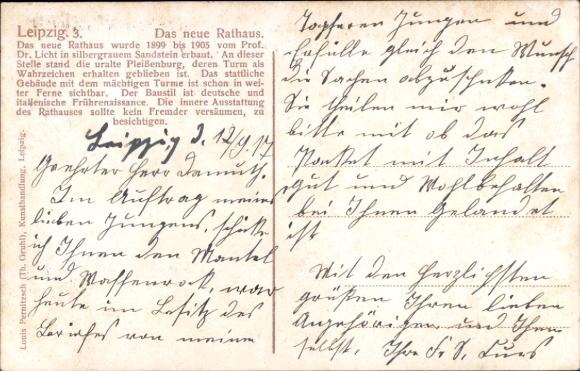 Leipzig. 3. Das neue Rathaus.
Das neue Rathaus wurde 1899 bis 1905 vom Prof.
Dr. Licht in silbergrauem Sandstein erbaut. An dieser
Stelle stand die uralte Pleißenburg, deren Turm als
Wahrzeichen erhalten geblieben ist. Das stattliche
Gebäude mit dem mächtigen Turme ist schon in wei-
ter Ferne sichtbar. Der Baustil ist deutsche und
italienische Frührenaissance. Die innere Ausstattung
des Rathauses sollte kein Fremder versäumen, zu
besichtigen.
Louis Pernitzsch (Th. Gruhl), Kunsthandlung, Leipzig.
Leipzig d. 12/9. 17
Geehrter Herr Damuth.
Im Auftrag meines
lieben Jungens, schicke
ich Ihnen den Mantel
und Waffenrock, war
heute im Besitz des
Briefes von meine
Tapferen Jungen und
erfülle gleich den Wunsch
die Sachen abzuschicken.
Sie teilen mir wohl
bitte mit ob das
Packet mit Inhalt
gut und Wohlbehalten
bei Ihnen Gelandet
ist
Mit den Herzlichsten
grüßen Ihren lieben
Angehörigen und Ihnen
selbst. Ihre Fr. S.